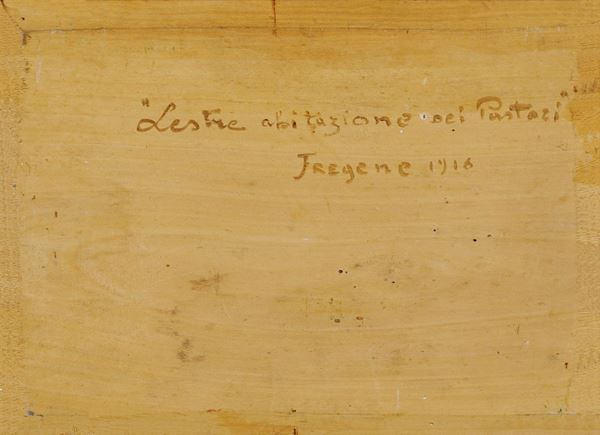 "Lestre abitazione dei Pastori"
Fregene 1916